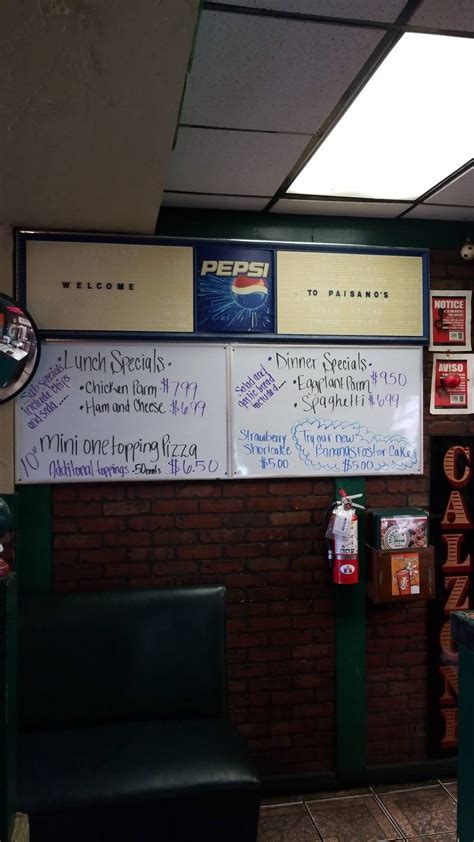 WELCOME
PEPSI
TO PAISANO'S
NOTICE
AVISO
Lunch Specials
Sub Specials
include chips
and soda
Chicken Parm $7.99
Ham and Cheese $6.99
10" Mini one topping Pizza
Additional toppings .50 cents $6.50
Dinner Specials
Salad and
garlic bread
included
Eggplant Parm $9.50
Spaghetti $6.99
Strawberry
Shortcake
$5.00
Try our new
Bananas Foster Cake
$5.00
CALZONE